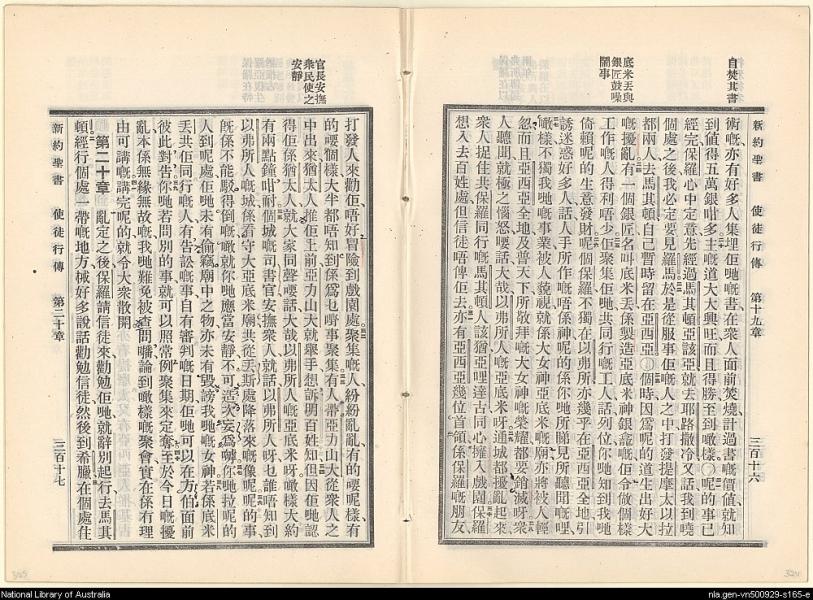 新約聖書　使徒行傳　第十九章　三百十六
自焚其書
底米丟與
銀匠鼓噪
鬧事
術嘅亦有好多人集埋佢哋嘅書在衆人面前焚燒計過書嘅價值就知
到値得五萬銀咁多主嘅道大大興旺而且得勝至到噉樣〇呢的事已
經完保羅心中定意先經過馬其頓亞該亞就去耶路撒冷又話我到嘵
個處之後我必定要見羅馬於是從服事佢嘅人之中打發提摩太以拉
都兩人去馬其頓自己暫時留在亞西亞〇個時因爲呢的道生出好大
嘅擾亂有一個銀匠名叫底米丟係製造亞底米神銀龕嘅佢令做個樣
工作嘅人得利唔少佢聚集佢哋共同行嘅工人話列位你哋知到我哋
倚賴呢的生意發財呢個保羅不獨在以弗所亦幾乎在亞西亞全地引
誘迷惑好多人話人手所作嘅唔係神呢的係你哋所睇見所聽聞嘅哩
噉樣不獨我哋嘅事業被人藐視就係大女神亞底米嘅廟亦將被人輕
忽而且亞西亞全地及普天下所敬拜嘅大女神嘅榮耀都要銷滅呀衆
人聽聞就極之惱怒嘐話大哉以弗所人嘅亞底米呀通城都擾亂起來
衆人捉住共保羅同行嘅馬其頓人該猶亞哩達古同心擁入戲園保羅
想入去百姓處但信徒唔俾佢去亦有亞西亞幾位首領係保羅嘅朋友
官長安撫
衆民使之
安靜
打發人來勸佢唔好冒險到戲園處聚集嘅人紛紛亂亂有的嘐呢樣有
的嘐個樣大半都唔知到係爲乜嘢事聚集有人帶亞力山大從衆人之
中出來猶太人推佢上前亞力山大就舉手想訴明百姓知但因佢哋認
得佢係猶太人就大家同聲嘐話大哉以弗所人嘅亞底米呀噉樣大約
有兩點鐘咁耐個城嘅司書官安撫衆人就話以弗所人呀乜誰唔知到
以弗所人嘅城係看守大亞底米廟共從丟斯處降落來嘅像呢呢的事
旣係不能駁得倒嘅噉就你哋應當安靜不可造次妄爲㖭你哋拉呢的
人到呢處佢哋未有偷竊廟中之物亦未有毀謗我哋嘅女神若係底米
丟共佢同行嘅人有告訟嘅事自有審判嘅日期佢哋可以在方伯面前
彼此對告你哋若問別的事就可以照常例聚集來定奪至於今日嘅擾
亂本係無緣無故嘅我哋難免被查問嚿論到噉樣嘅聚會實在係冇理
由可講嘅講完呢的就令大衆散開
第二十章　亂定之後保羅請信徒來勸勉佢哋就辭別起行去馬其
頓經行個處一帶嘅地方械好多說話勸勉信徒然後到希臘在個處住
新約聖書　使徒行傳　第二十章　三百十七
National Library of Australia
nla.gen-vn500929-s165-e